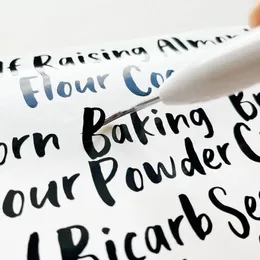 lf Raising Almon
Flour Co
orn Baking B
our Powder C
Bicarb See